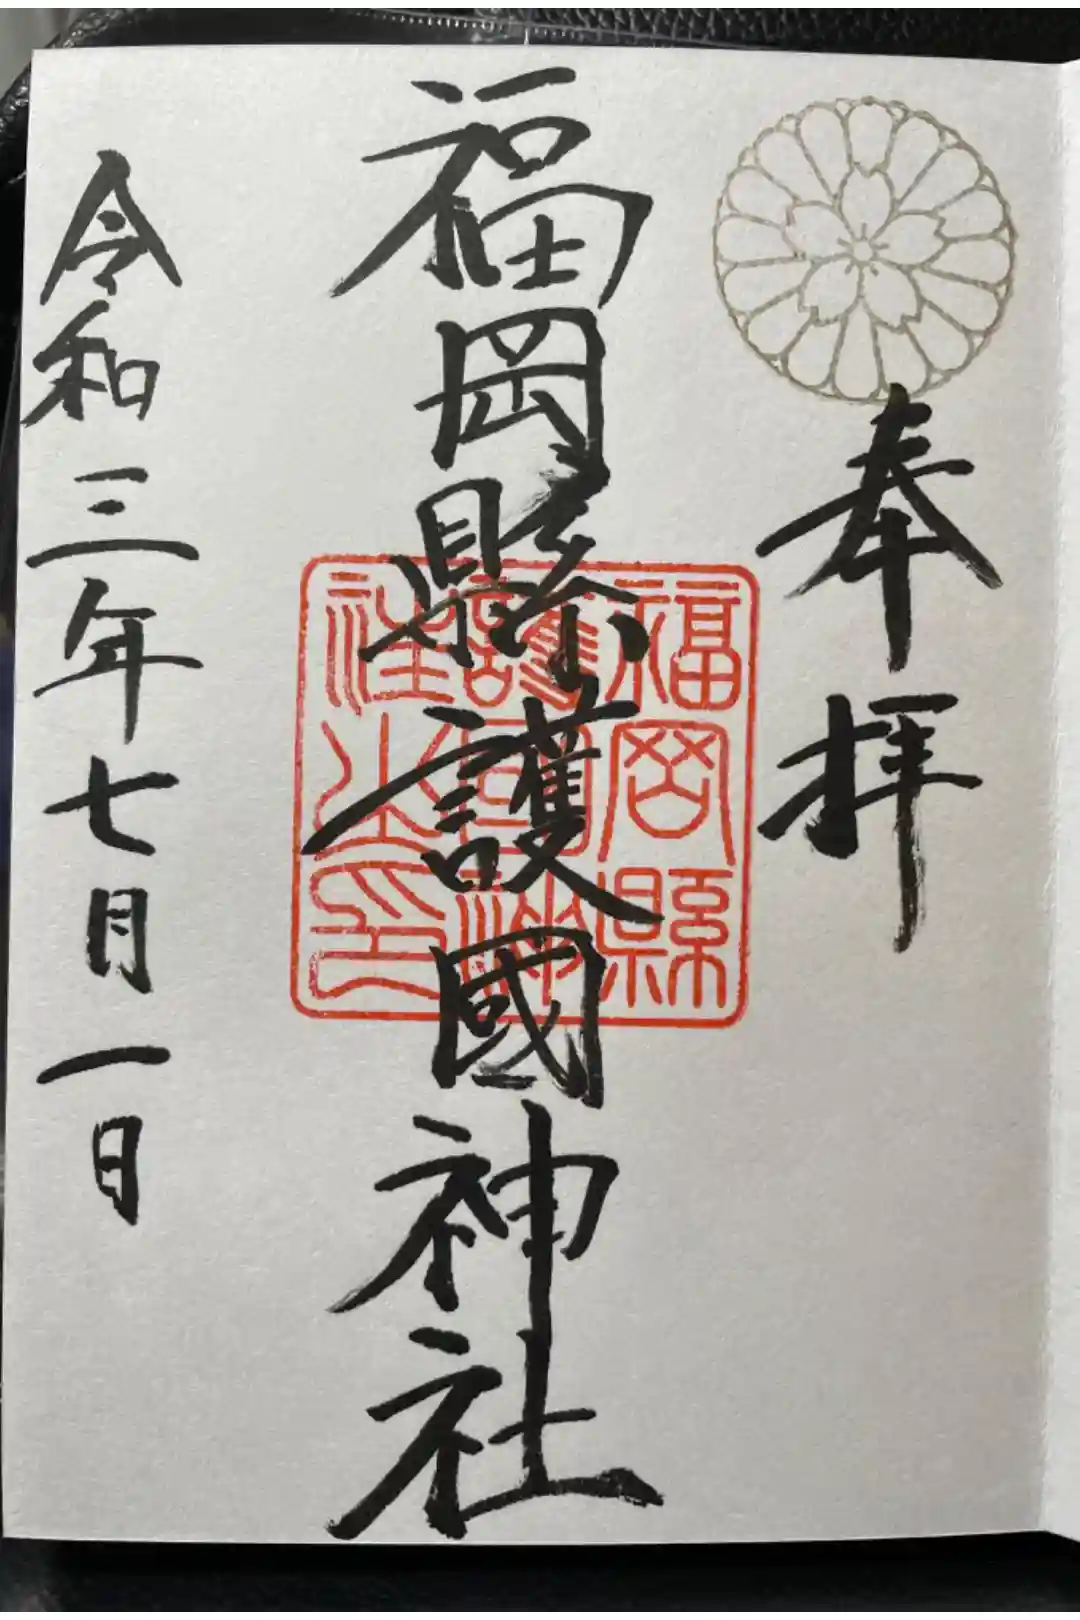 奉拝
福岡縣護國神社
福岡縣
護国神
社之印
令和三年七月一日